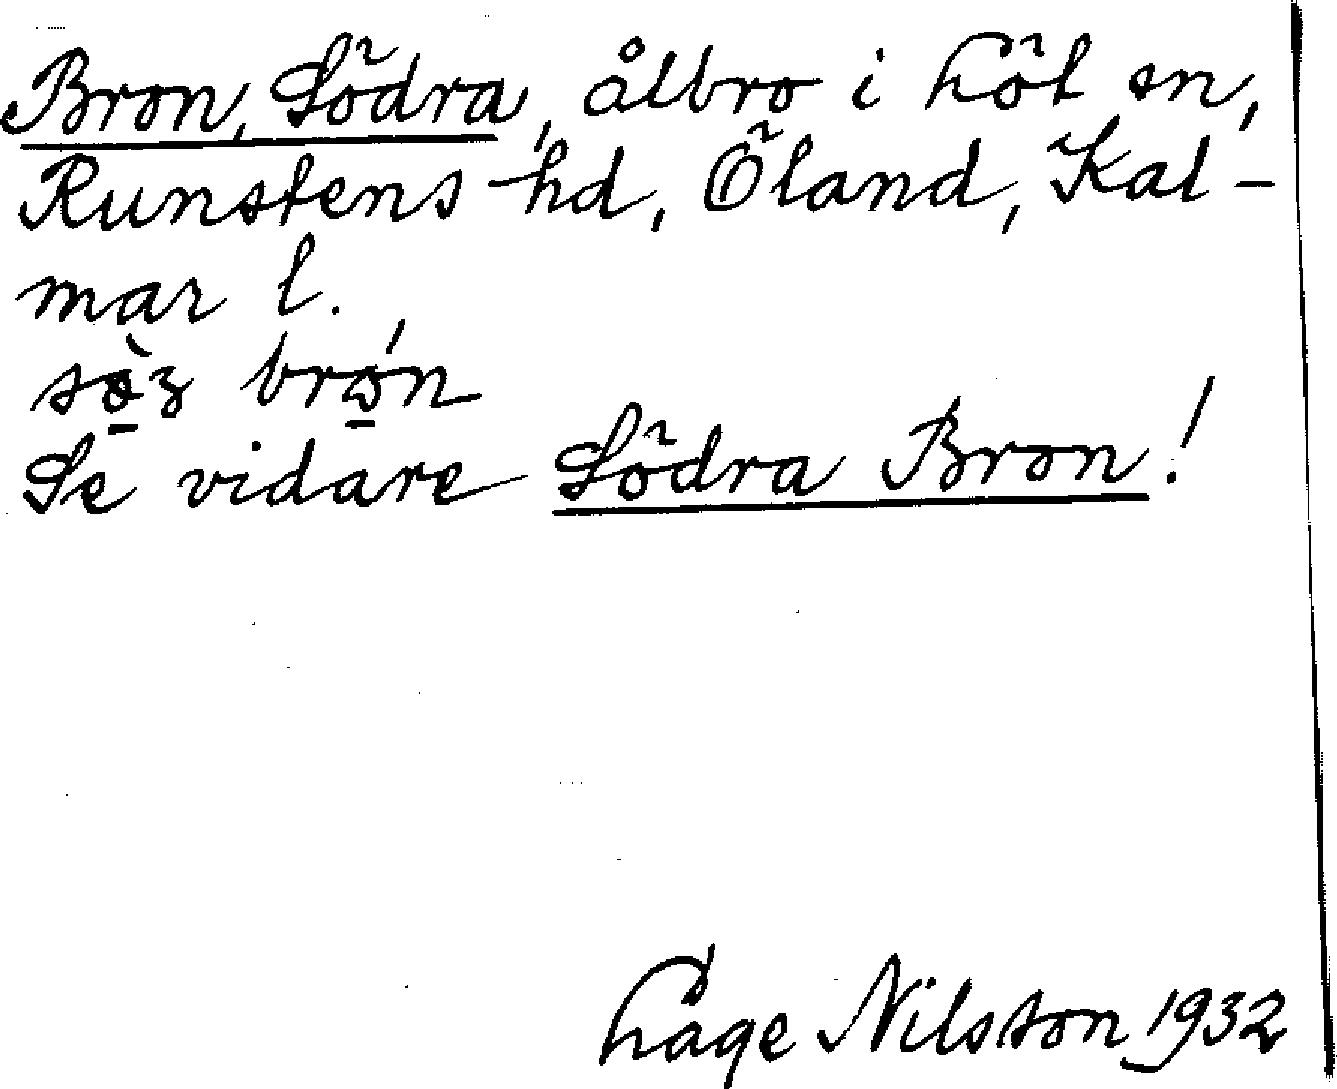 Bron, Södra, ålbro i Löt sn,
Runstens hd, Öland, Kal-
mar l.
Se vidare Södra Bron!
Låge Nilsson 1932